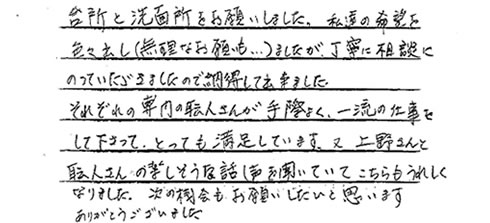 台所と洗面所をお願いしました。私達の希望を
色々出し(無理なお願いも…)ましたが丁寧に相談に
のっていただきましたので納得して出来ました。
それぞれの専門の職人さんが手際よく、一流の仕事を
して下さって、とっても満足しています。又上野さんと
職人さんの楽しそうな話し声を聞いていてこちらもうれしく
なりました。次の機会もお願いしたいと思います
ありがとうございました